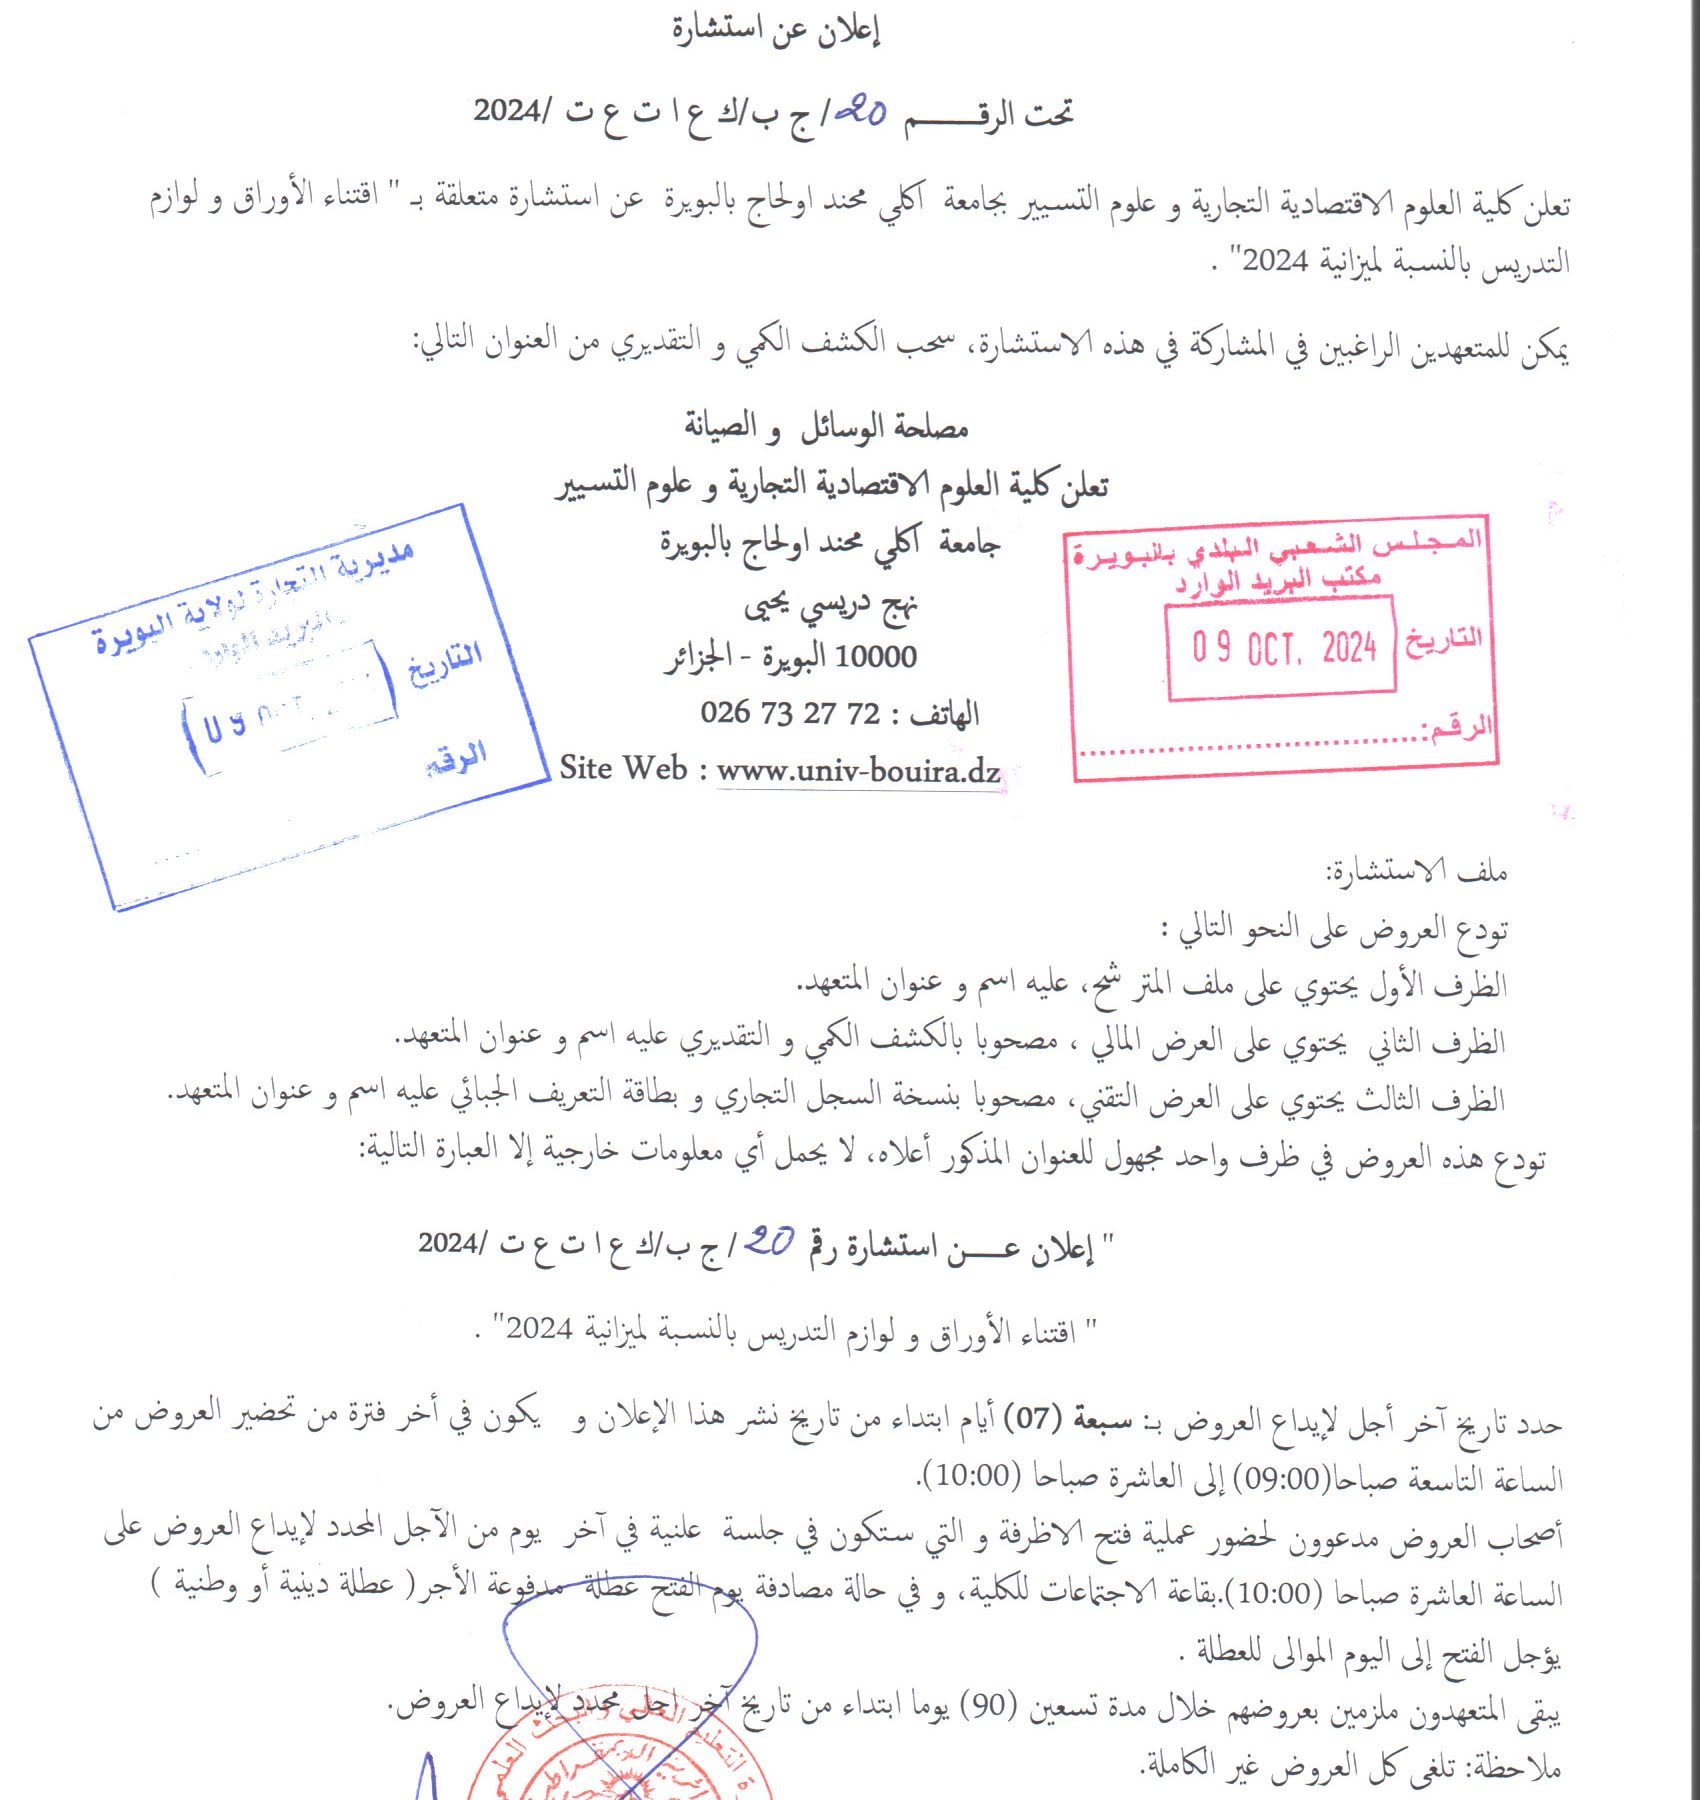 إعلان عن استشارة
تحت الرقـــــــم 20/ ج ب/ك ع ا ت ع ت /2024
تعلن كلية العلوم الاقتصادية التجارية و علوم التسيير بجامعة آكلي محند اولحاج بالبويرة عن استشارة متعلقة بـ " اقتناء الأوراق و لوازم
التدريس بالنسبة لميزانية 2024" .
يمكن للمتعهدين الراغبين في المشاركة في هذه الاستشارة، سحب الكشف الكمي و التقديري من العنوان التالي:
مصلحة الوسائل و الصيانة
تعلن كلية العلوم الاقتصادية التجارية و علوم التسيير
جامعة آكلي محند اولحاج بالبويرة
نهج دريسي يحيى
10000 البويرة - الجزائر
الهاتف : 026 73 27 72
Site Web : www.univ-bouira.dz
المجلس الشعبي البلدي بالبويرة
مكتب البريد الوارد
التاريخ 09 OCT. 2024
الرقم:
مديرية التجارة لولاية البويرة
التاريخ
الرقم
ملف الاستشارة:
تودع العروض على النحو التالي :
الظرف الأول يحتوي على ملف المتر شح، عليه اسم و عنوان المتعهد.
الظرف الثاني يحتوي على العرض المالي ، مصحوبا بالكشف الكمي و التقديري عليه اسم و عنوان المتعهد.
الظرف الثالث يحتوي على العرض التقني، مصحوبا بنسخة السجل التجاري و بطاقة التعريف الجبائي عليه اسم و عنوان المتعهد.
تودع هذه العروض في ظرف واحد مجهول للعنوان المذكور أعلاه، لا يحمل أي معلومات خارجية إلا العبارة التالية:
" إعلان عــــن استشارة رقم 20/ ج ب/ك ع ا ت ع ت /2024
" اقتناء الأوراق و لوازم التدريس بالنسبة لميزانية 2024" .
حدد تاريخ آخر أجل لإيداع العروض بـ: سبعة (07) أيام ابتداء من تاريخ نشر هذا الإعلان و يكون في أخر فترة من تحضير العروض من
الساعة التاسعة صباحا(09:00) إلى العاشرة صباحا (10:00).
أصحاب العروض مدعوون لحضور عملية فتح الاظرفة و التي ستكون في جلسة علنية في آخر يوم من الآجل المحدد لإيداع العروض على
الساعة العاشرة صباحا (10:00).بقاعة الاجتماعات للكلية، و في حالة مصادفة يوم الفتح عطلة مدفوعة الأجر( عطلة دينية أو وطنية )
يؤجل الفتح إلى اليوم الموالى للعطلة .
يبقى المتعهدون ملزمين بعروضهم خلال مدة تسعين (90) يوما ابتداء من تاريخ آخر اجل محدد لإيداع العروض.
ملاحظة: تلغى كل العروض غير الكاملة.